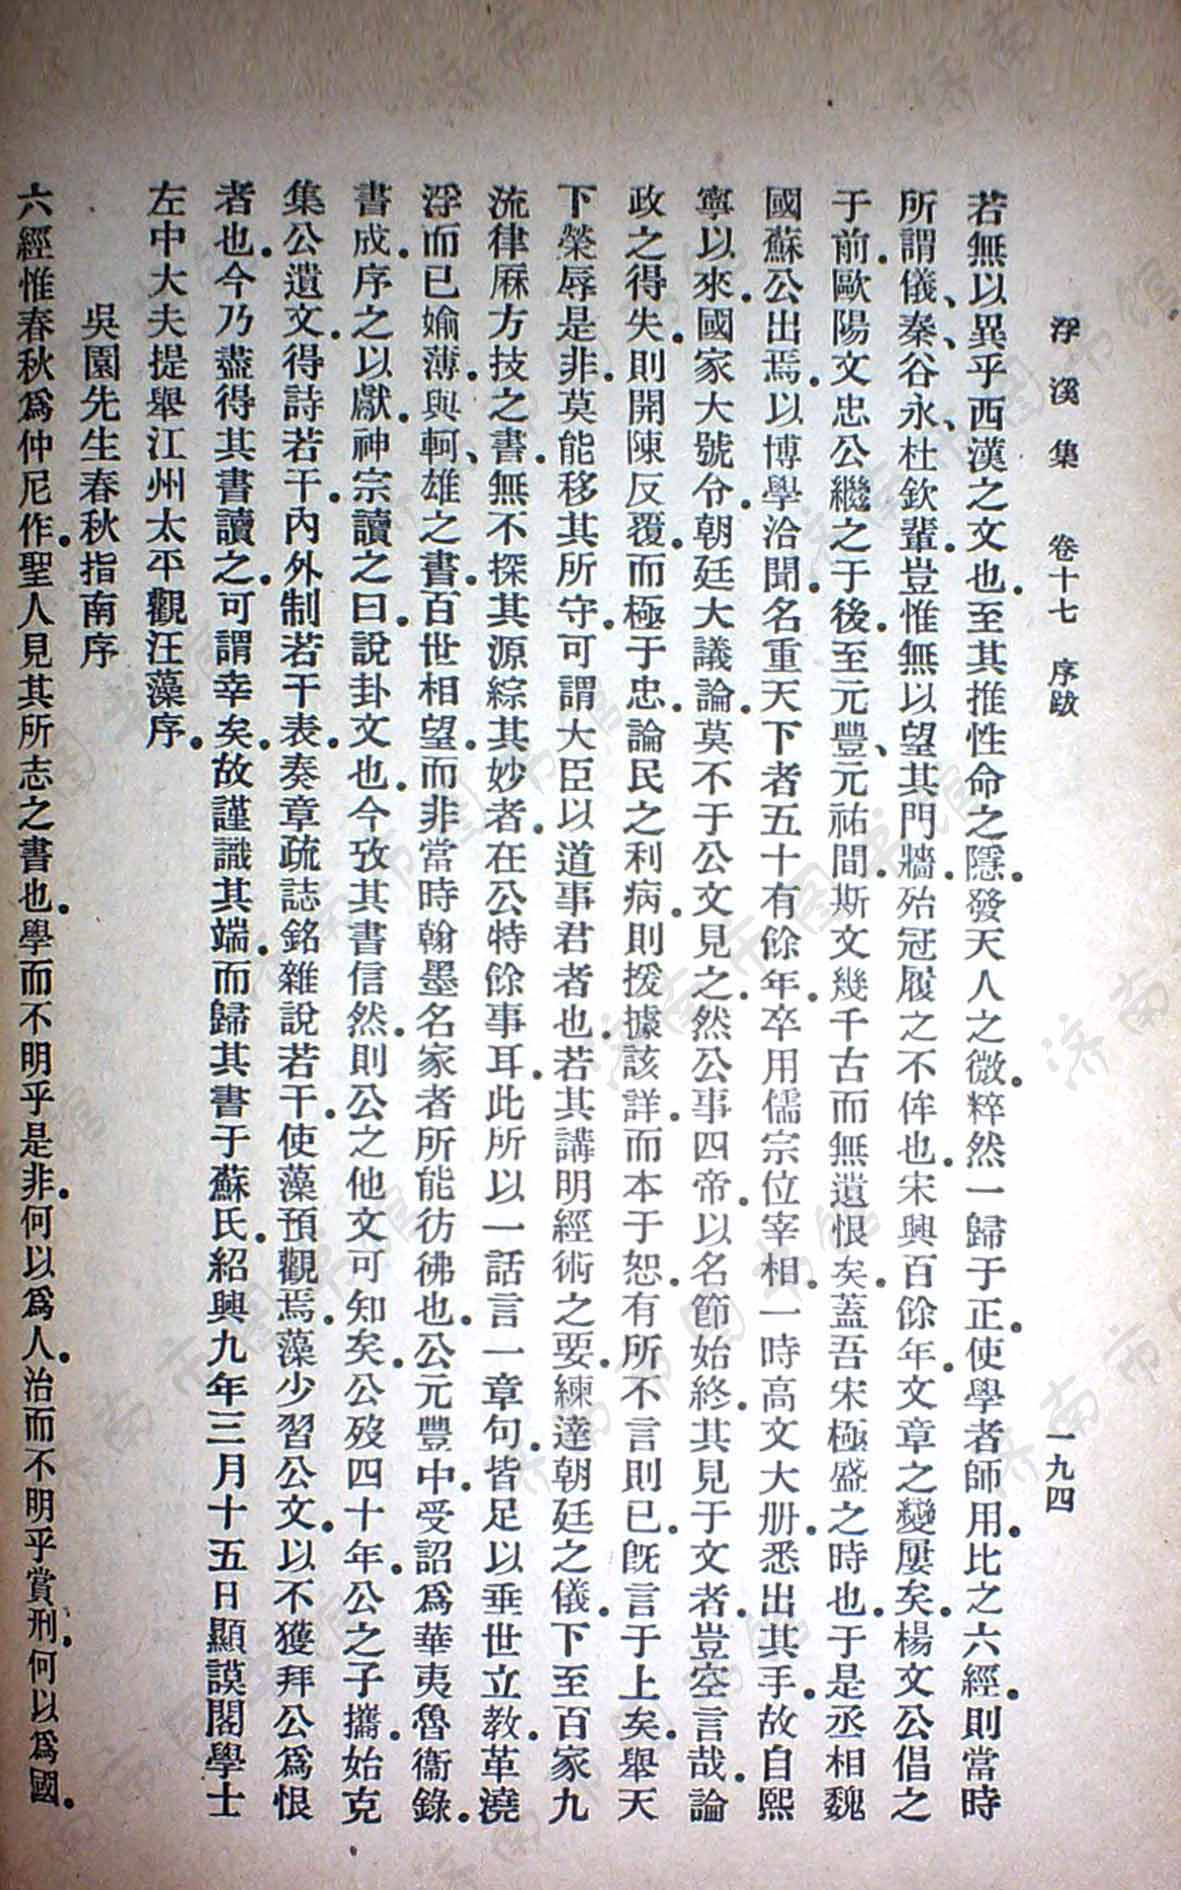 浮溪集 卷十七 序跋 一九四
若無以異乎西漢之文也。至其推性命之隱。發天人之微。粹然一歸于正。使學者師用。比之六經。則當時
所謂儀、秦、谷永、杜欽輩。豈惟無以望其門牆。殆冠履之不侔也。宋興百餘年。文章之變屢矣。楊文公倡之
于前。歐陽文忠公繼之于後。至元豐、元祐間。斯文幾千古而無遺恨矣。蓋吾宋極盛之時也。于是丞相魏
國蘇公出焉。以博學洽聞。名重天下者五十有餘年。卒用儒宗位宰相。一時高文大册。悉出其手。故自熙
寧以來。國家大號令。朝廷大議論。莫不于公文見之。然公事四帝。以名節始終。其見于文者。豈空言哉。論
政之得失。則開陳反覆。而極于忠。論民之利病。則援據該詳。而本于恕。有所不言則已。旣言于上矣。舉天
下榮辱是非。莫能移其所守。可謂大臣以道事君者也。若其講明經術之要。練達朝廷之儀。下至百家九
流律厤方技之書。無不探其源綜其妙者。在公特餘事耳。此所以一話言一章句。皆足以垂世立敎。革澆
浮而已婾薄。與軻、雄之書。百世相望。而非當時翰墨名家者所能彷彿也。公元豐中。受詔爲華夷魯衞錄。
書成。序之以獻。神宗讀之曰。說卦文也。今攷其書信然。則公之他文可知矣。公歿四十年。公之子攜。始克
集公遺文。得詩若干。內外制若干。表奏章疏誌銘雜說若干。使藻預觀焉。藻少習公文。以不獲拜公爲恨
者也。今乃盡得其書讀之。可謂幸矣。故謹識其端。而歸其書于蘇氏。紹興九年三月十五日顯謨閣學士
左中大夫提舉江州太平觀汪藻序。
吳園先生春秋指南序
六經惟春秋爲仲尼作。聖人見其所志之書也。學而不明乎是非。何以爲人。治而不明乎賞刑。何以爲國。